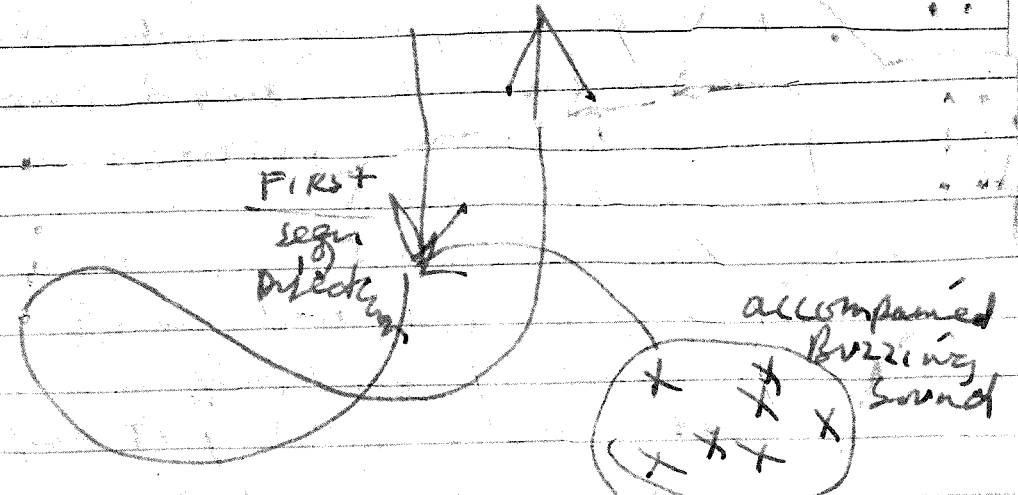 First
seen
Direction
accompanied
Buzzing
Sound